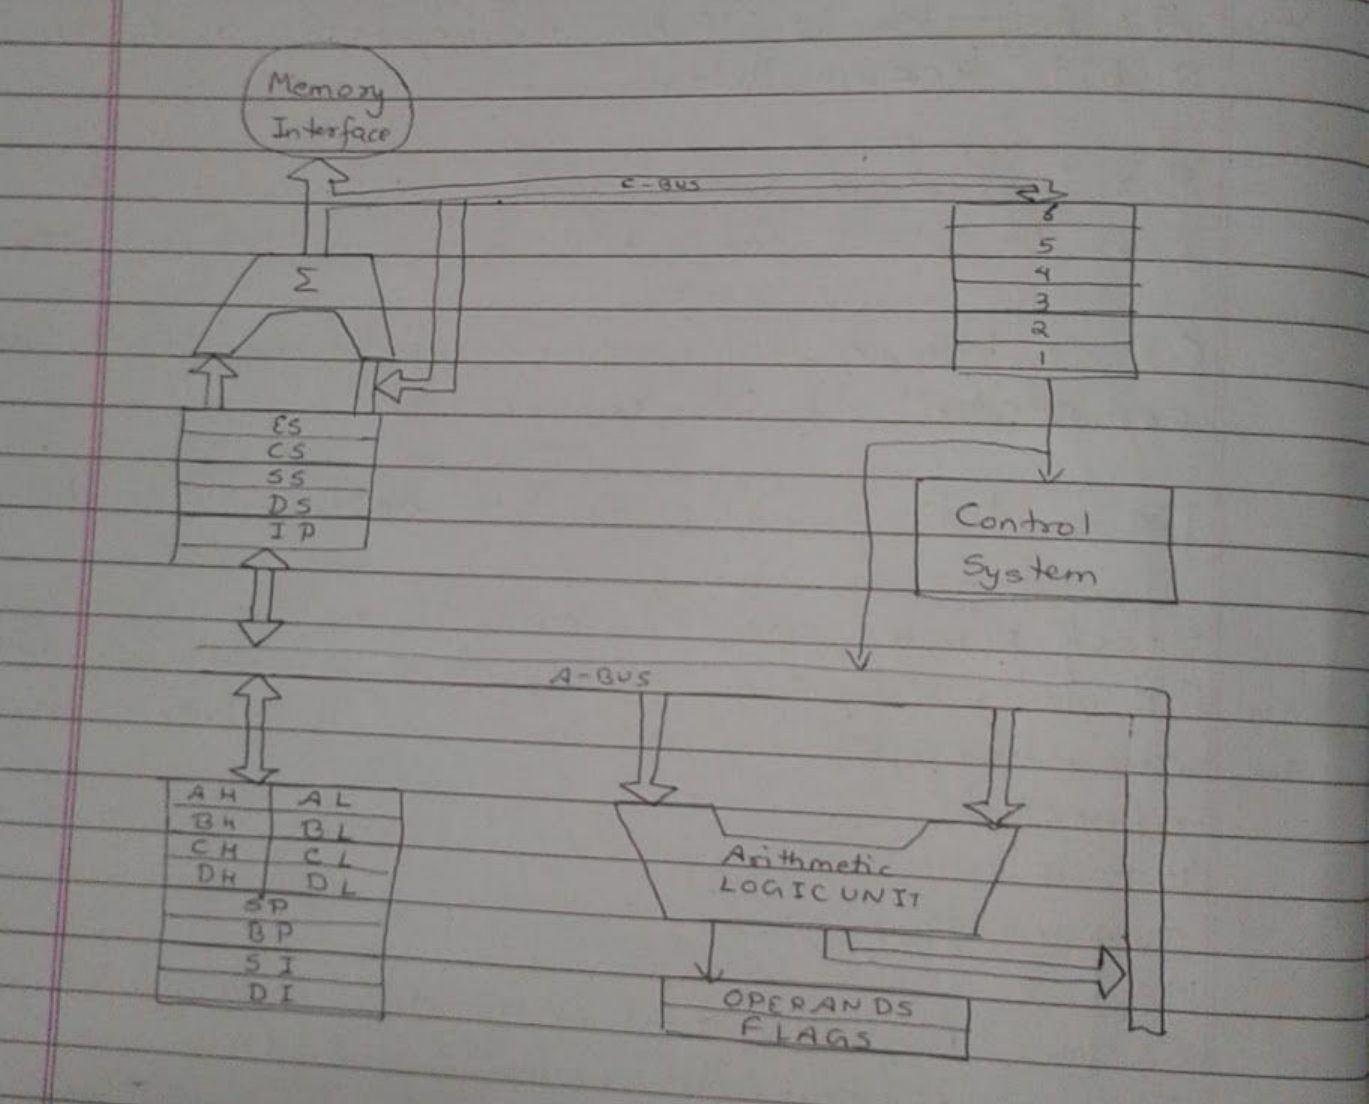 Memory
Interface
C-BUS
Σ
6
5
4
3
2
1
ES
CS
SS
DS
IP
Control
System
A-BUS
AH AL
BH BL
CH CL
DH DL
SP
BP
SI
DI
Arithmetic
LOGIC UNIT
OPERANDS
FLAGS